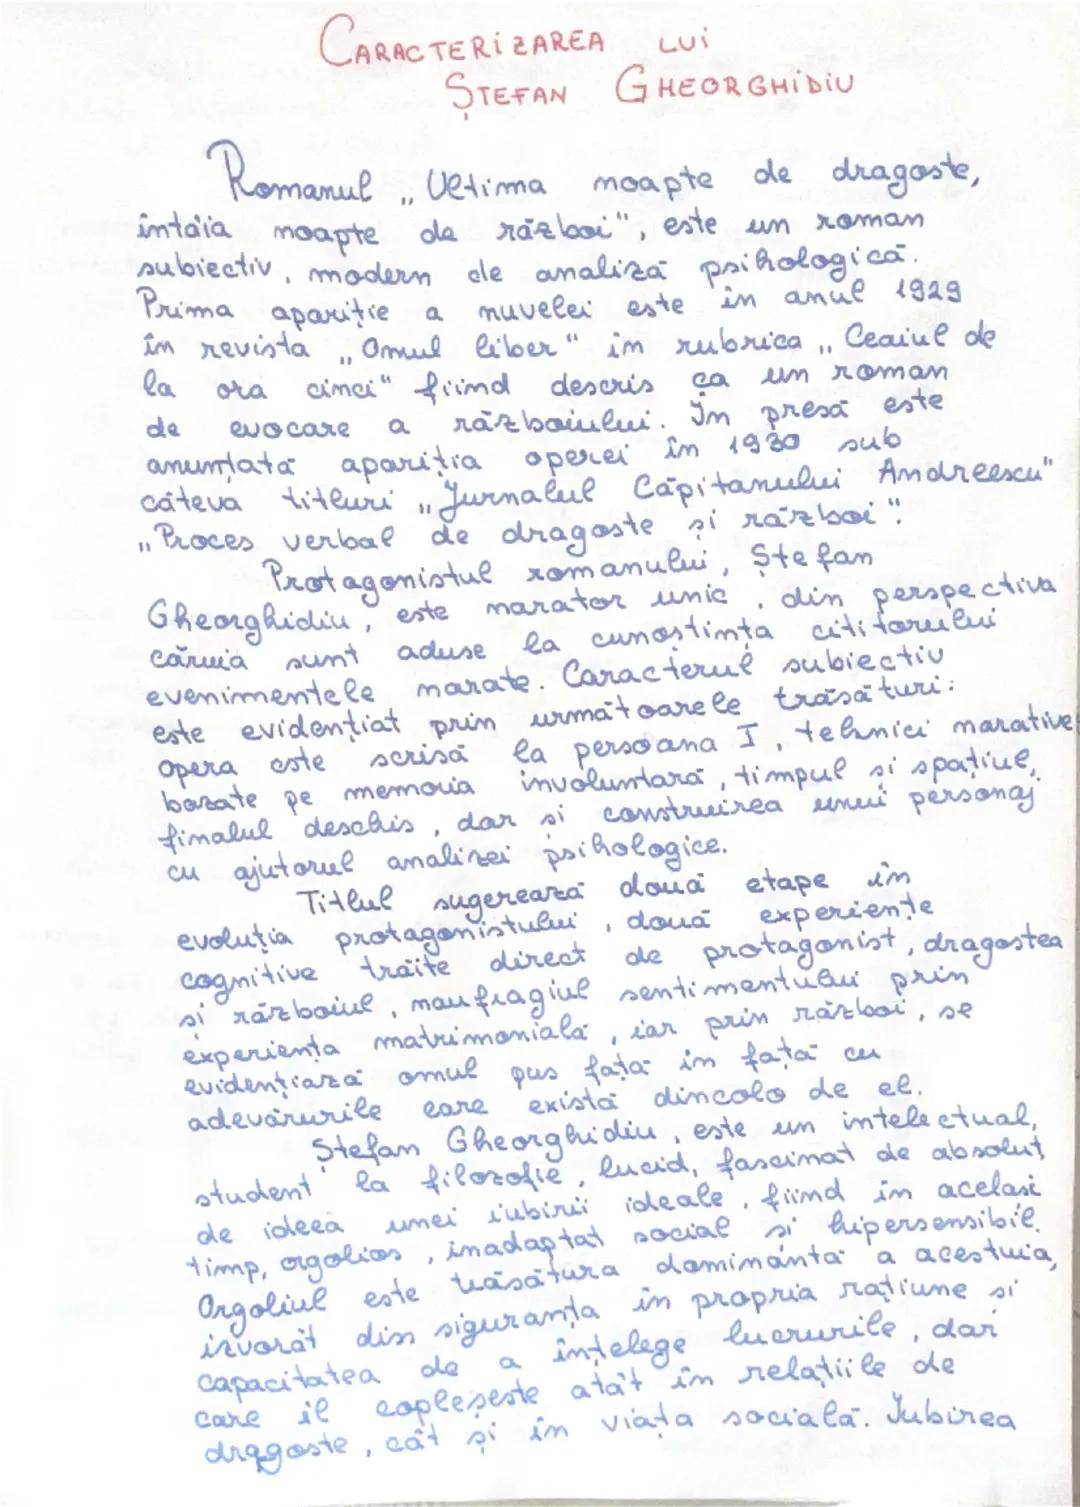 CARACTERIZAREA LUI
ȘTEFAN GHEORGHIDIU
Romanul „Ultima noapte de dragoste,
întâia noapte de război", este un roman
subiectiv, modern de analiză psihologică.
Prima apariție a nuvelei este în anul 1929
în revista „Omul liber" în rubrica „Ceaiul de
la ora cinci" fiind descris ca un roman
de evocare a războiului. În presă este
anunțată apariția operei în 1930 sub
câteva titluri „Jurnalul Căpitanului Andreescu"
„Proces verbal de dragoste și război".
Protagonistul romanului, Ștefan
Gheorghidiu, este narator unic, din perspectiva
căruia sunt aduse la cunoștința cititorului
evenimentele narate. Caracterul subiectiv
este evidențiat prin următoarele trăsături:
opera este scrisă la persoana I, tehnici narative
bazate pe memoria involuntară, timpul și spațiul,
finalul deschis, dar și construirea unui personaj
cu ajutorul analizei psihologice.
Titlul sugerează două etape în
evoluția protagonistului, două experiențe
cognitive trăite direct de protagonist, dragostea
și războiul, naufragiul sentimentului prin
experiența matrimonială, iar prin război, se
evidențiază omul pus față în față cu
adevărurile care există dincolo de el.
Ștefan Gheorghidiu, este un intelectual,
student la filozofie, lucid, fascinat de absolut,
de ideea unei iubirii ideale, fiind în același
timp, orgolios, inadaptat social și hipersensibil.
Orgoliul este trăsătura dominantă a acestuia,
izvorât din siguranța în propria rațiune și
capacitatea de a înțelege lucrurile, dar
care îl copleșește atât în relațiile de
dragoste, cât și în viața socială. Iubirea